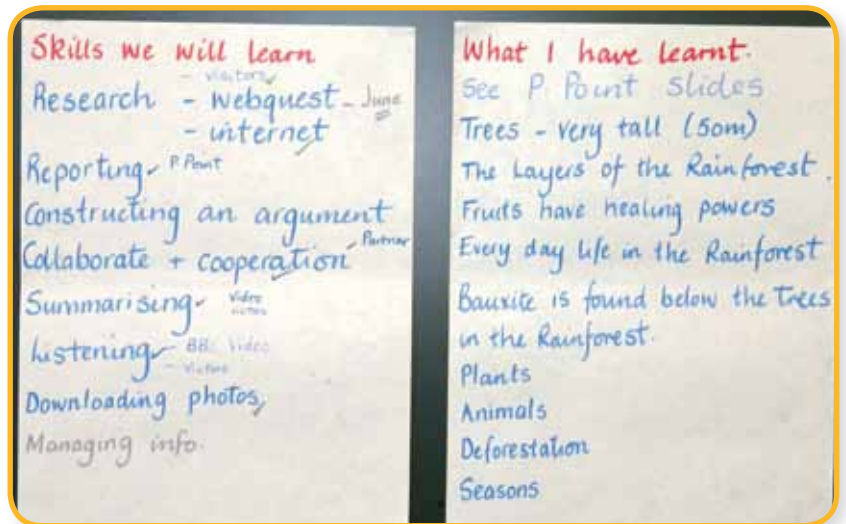 Skills we will learn
- visitors
Research - webquest - June
- internet
Reporting P. Point
Constructing an argument
Collaborate + cooperation Partner
Summarising Video
visitors
Listening BBC Video
- Visitors
Downloading photos
Managing info.
What I have learnt.
See P. Point Slides
Trees - very tall (50m)
The Layers of the Rainforest.
Fruits have healing powers
Every day life in the Rainforest
Bauxite is found below the Trees
in the Rainforest.
Plants
Animals
Deforestation
Seasons